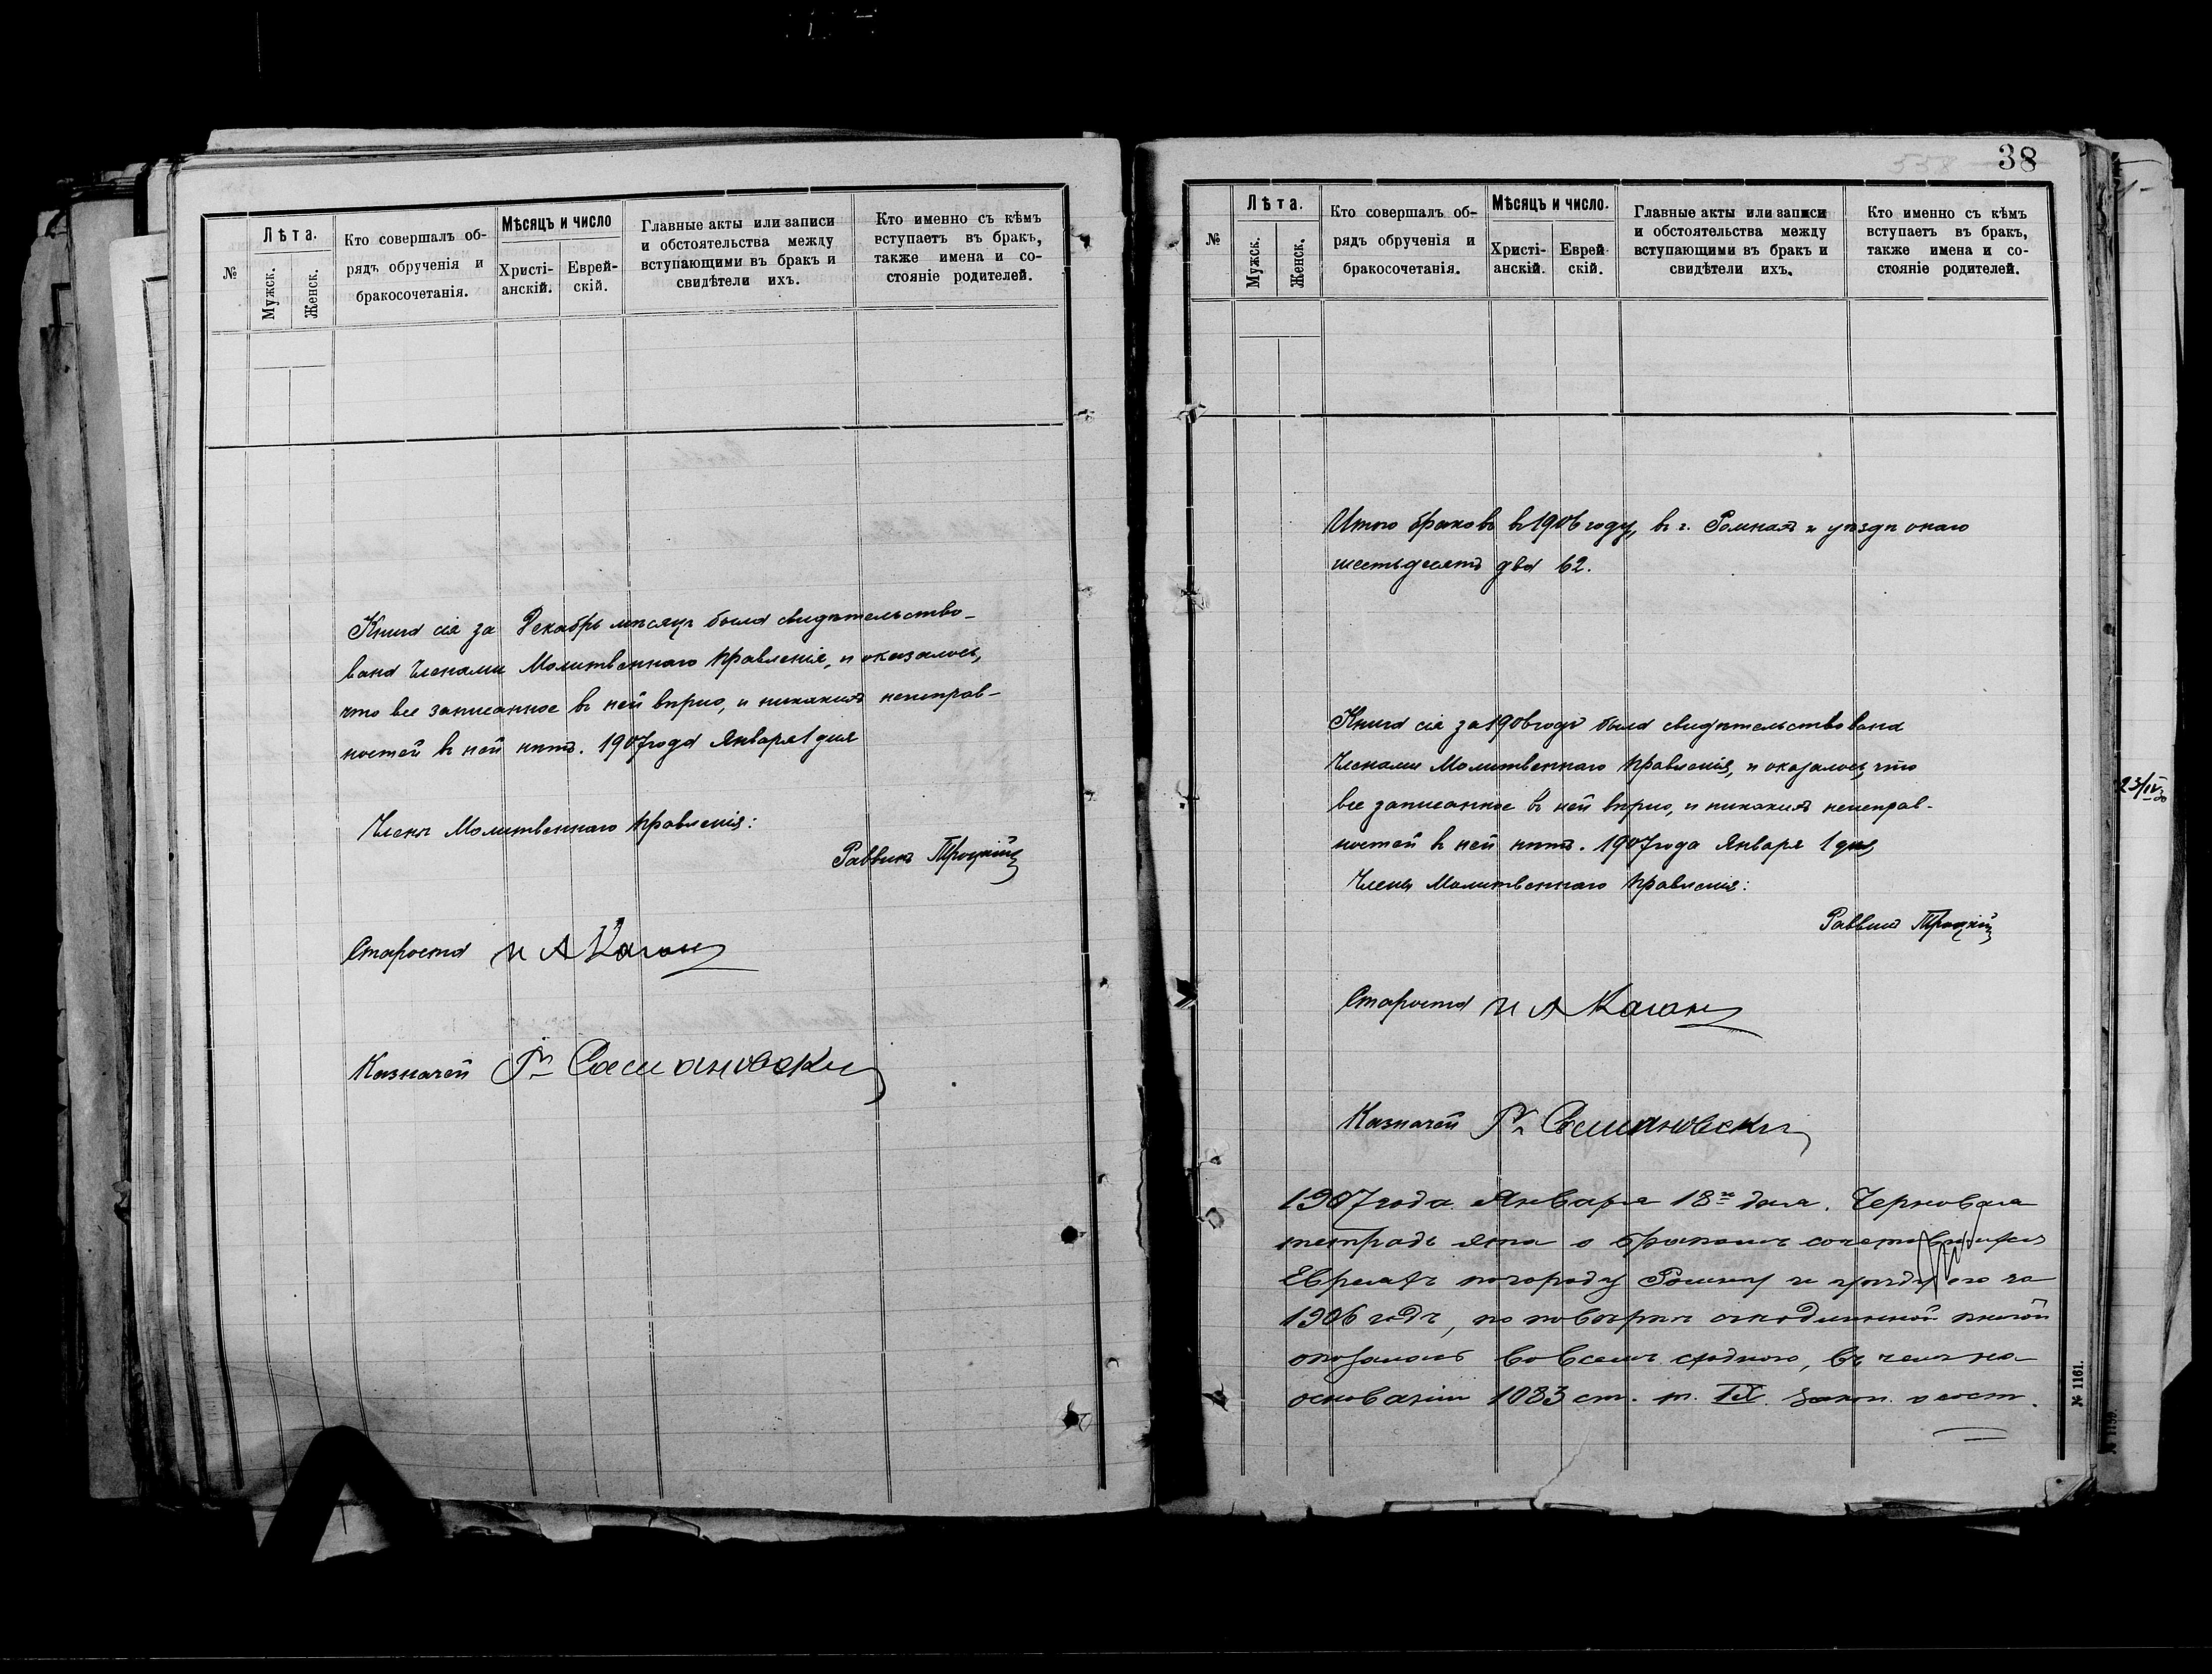 №
Лѣта.
Мужск.
Женск.
Кто совершалъ об-
рядъ обрученія и
бракосочетанія.
Мѣсяцъ и число
Христі-
анскій.
Еврей-
скій.
Главные акты или записи
и обстоятельства между
вступающими въ бракъ и
свидѣтели ихъ.
Кто именно съ кѣмъ
вступаетъ въ бракъ,
также имена и со-
стояніе родителей.
Книга сія за Декабрь мѣсяцъ была свидѣтельство-
вана Членами Молитвеннаго Правленія, и оказалось,
что все записанное въ ней вѣрно, и никакихъ неисправ-
ностей въ ней нѣтъ. 1907 года Января 1 дня
Члены Молитвеннаго Правленія:
Раввинъ Троцкій
Староста И А Каганъ
Казначей
38
№
Лѣта.
Мужск.
Женск.
Кто совершалъ об-
рядъ обрученія и
бракосочетанія.
Мѣсяцъ и число.
Христі-
анскій.
Еврей
скій.
Главные акты или записи
и обстоятельства между
вступающими въ бракъ и
свидѣтели ихъ.
Кто именно съ кѣмъ
вступаетъ въ бракъ,
также имена и со-
стояніе родителей.
Итого браковъ въ 1906 году, въ г. Ромнахъ и уѣздѣ онаго
шестьдесятъ два 62.
Книга сія за 1906 годъ была свидѣтельствована
Членами Молитвеннаго Правленія, и оказалось, что
все записанное въ ней вѣрно, и никакихъ неисправ-
ностей въ ней нѣтъ. 1907 года Января 1 дня
Члены Молитвеннаго Правленія:
Раввинъ Троцкій
Староста И А Каганъ
Казначей
1907 года Января 18го дня. Черновая
тетрадь эта о бракомъ сочетавшихся
Евреяхъ по городу Ромну и уѣзду его за
1906 годъ, по повѣркѣ съ подлинной книгой
оказалась во всемъ сходною, въ чемъ на
основаніи 1083 ст. т. IX. Закон. о сост.
№ 1161.